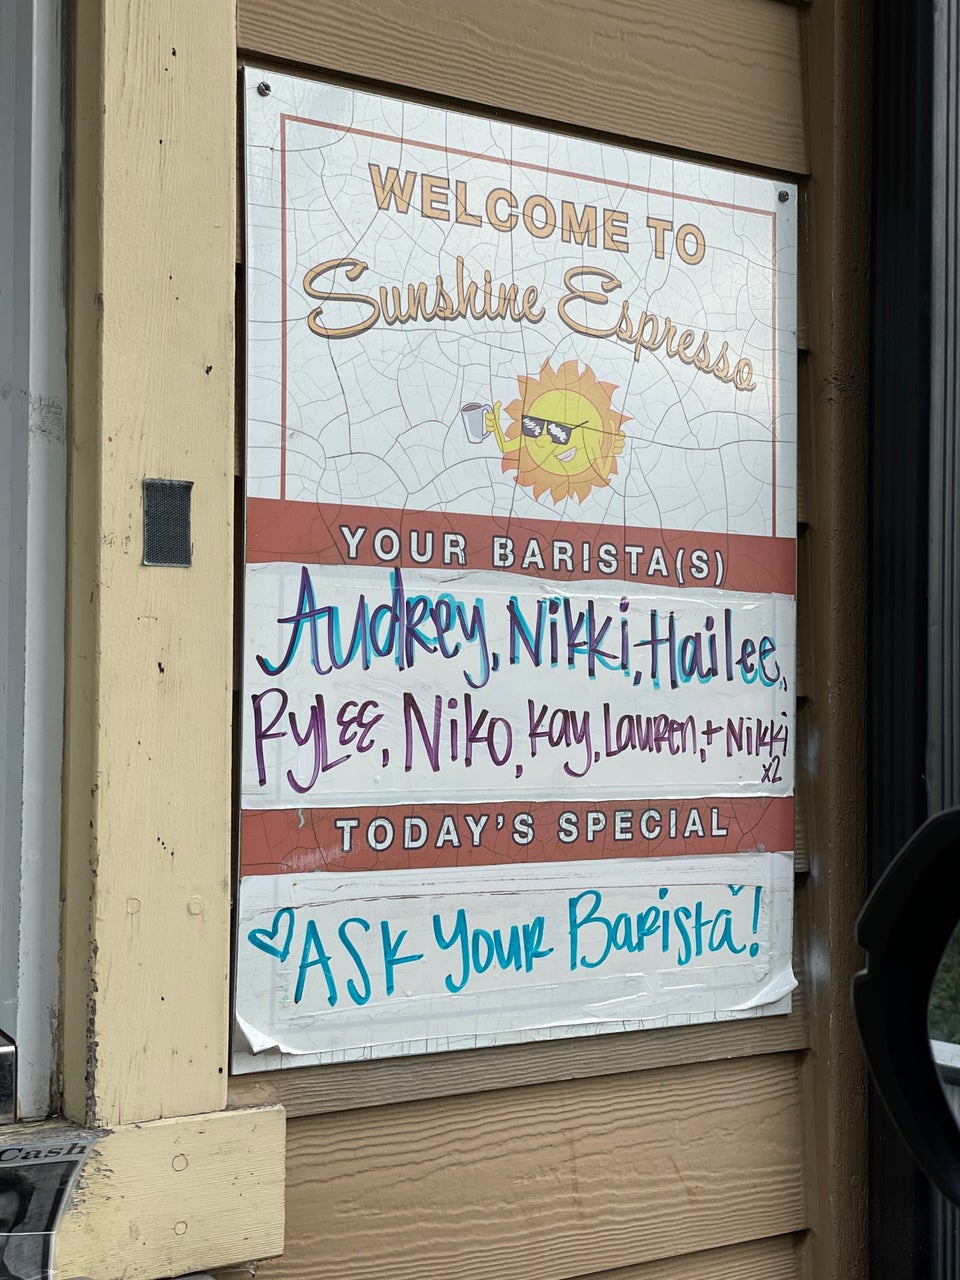 WELCOME TO
Sunshine Espresso
YOUR BARISTA(S)
Audrey, Nikki, Hailee,
Rylee, Niko, Kay, Lauren, + Nikki
x2
TODAY'S SPECIAL
♡ ASK Your Barista!
Cash